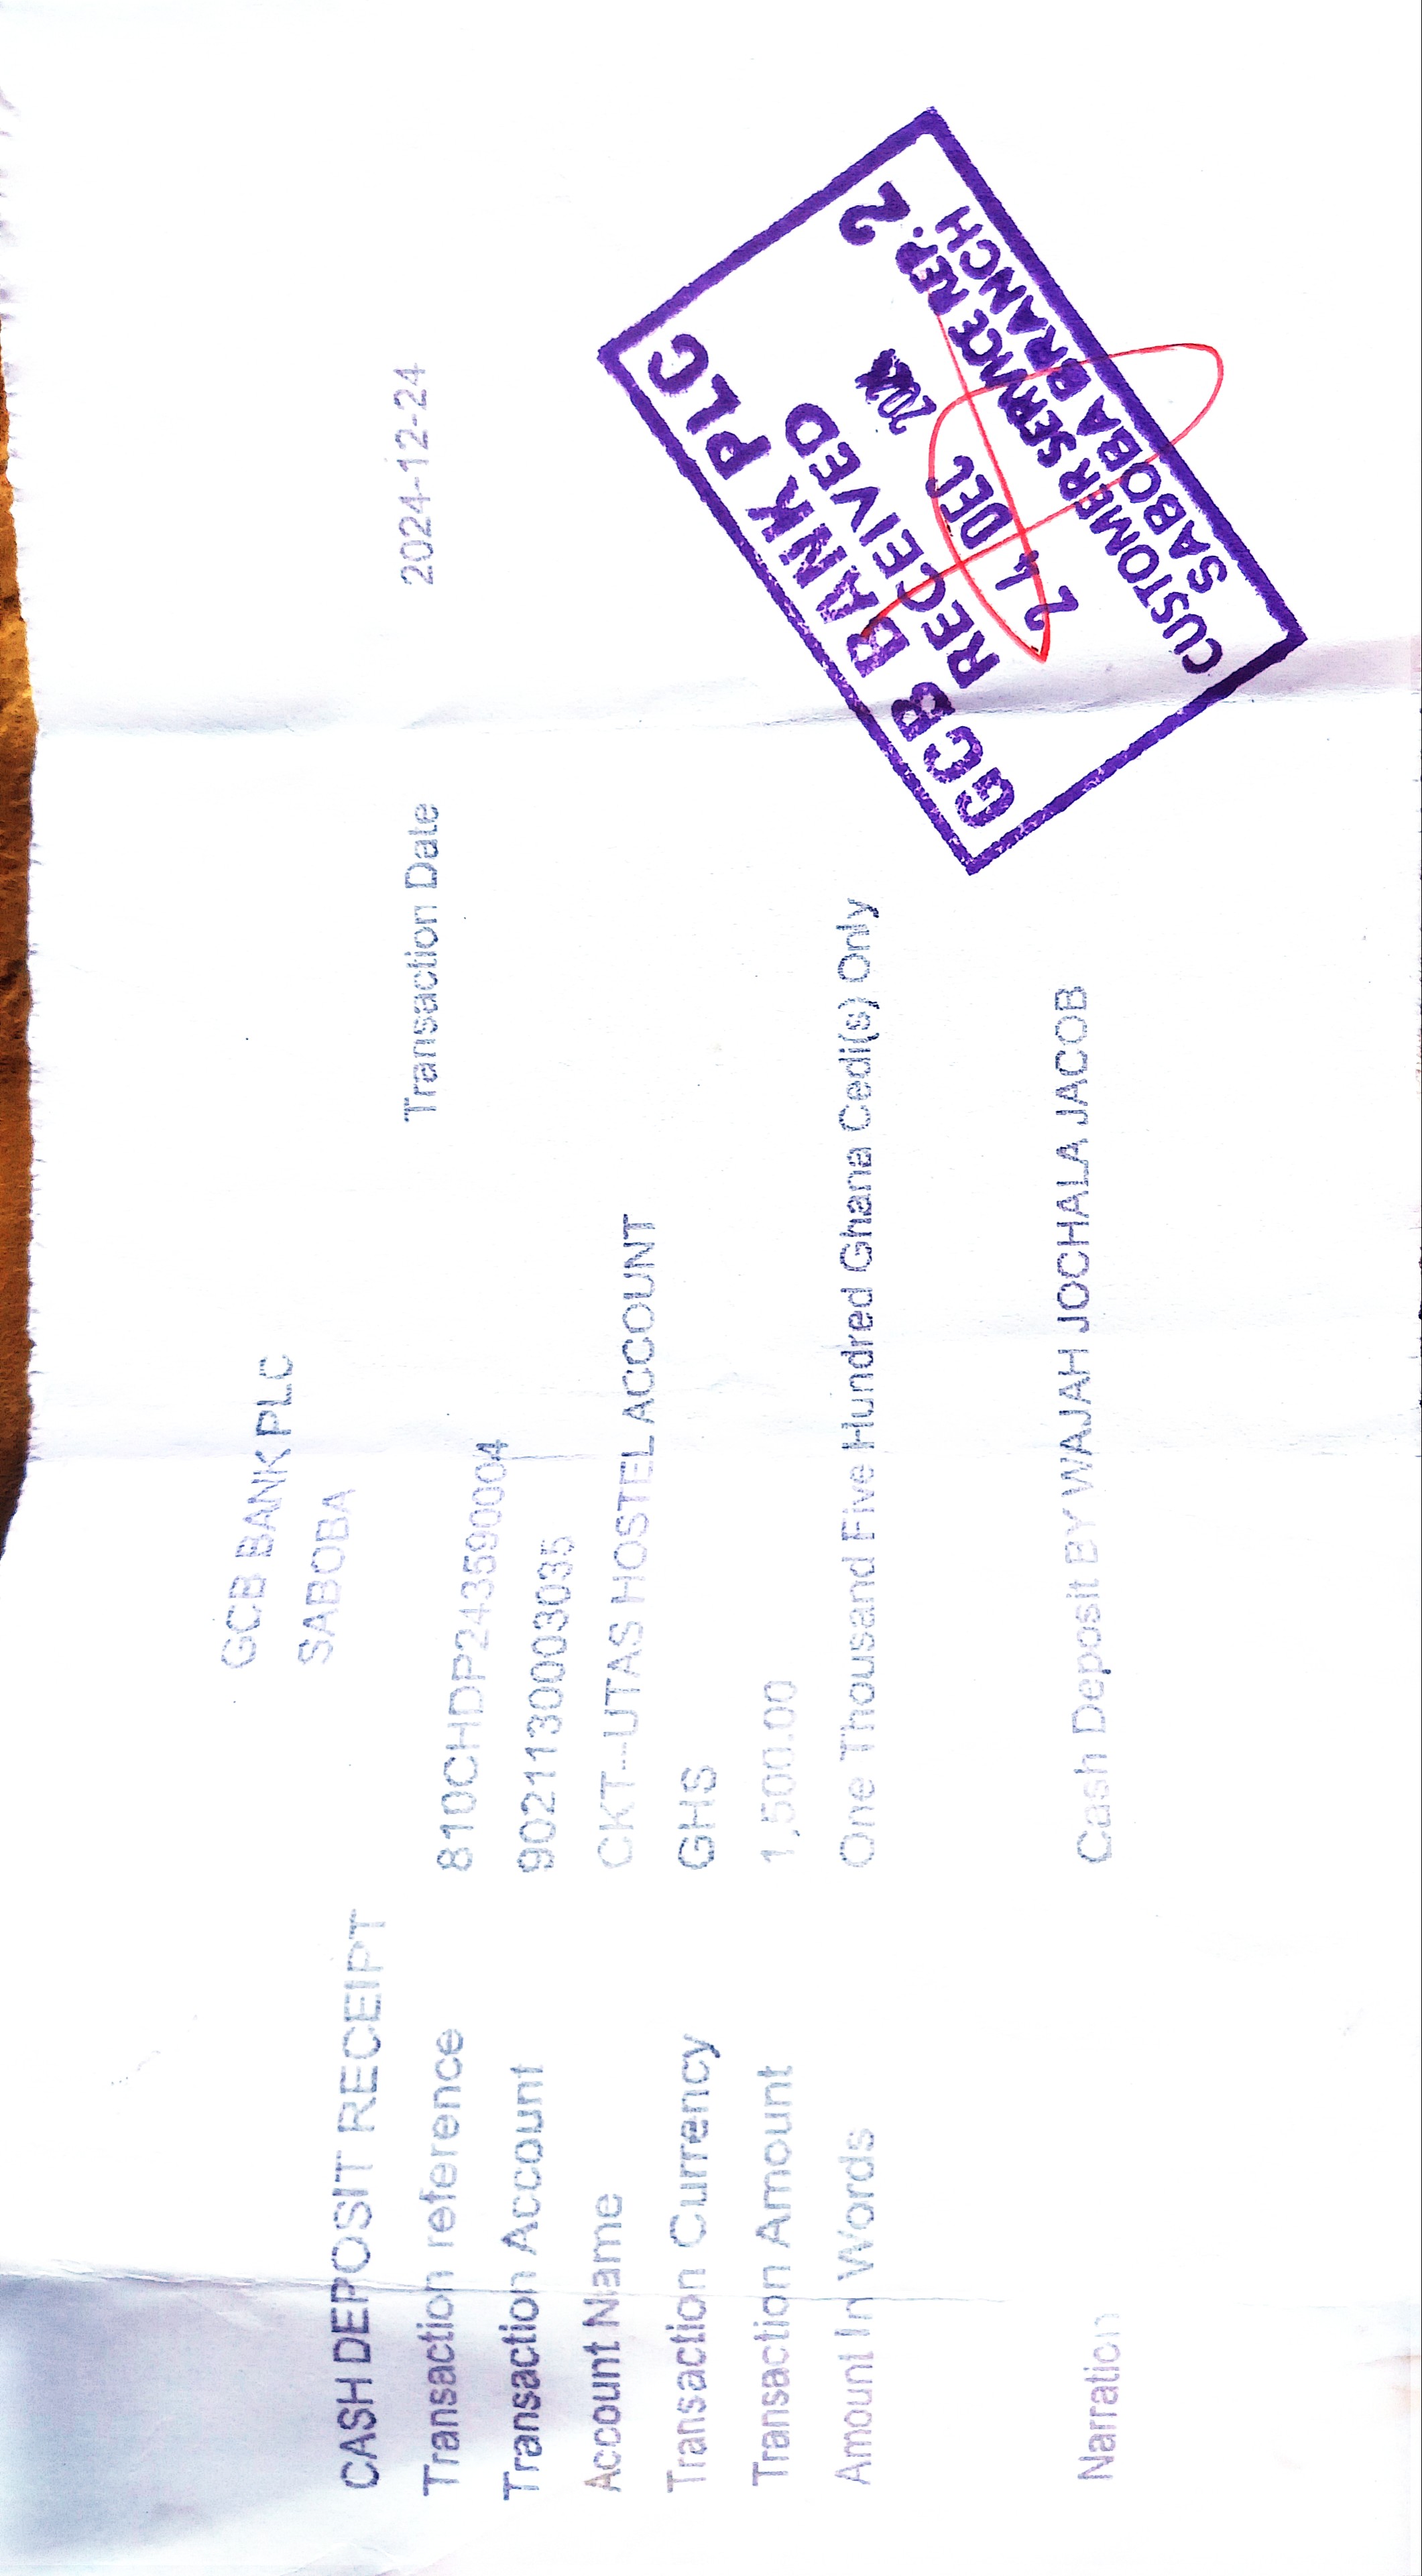 GCB BANK PLC
SABOBA
CASH DEPOSIT RECEIPT
Transaction reference 810CHDP243590004 Transaction Date 2024-12-24
Transaction Account 9021130003035
Account Name CKT---UTAS HOSTEL ACCOUNT
Transaction Currency GHS
Transaction Amount 1,500.00
Amount In Words One Thousand Five Hundred Ghana Cedi(s) Only
Narration Cash Deposit BY WAJAH JOCHALA JACOB
GCB BANK PLC
RECEIVED
24 DEC
CUSTOMER SERVICE REP. 2
SABOBA BRANCH